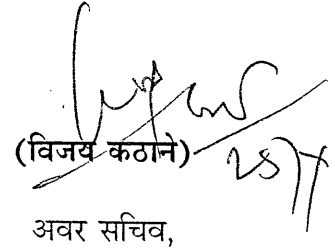 (विजय कठाने)
अवर सचिव,